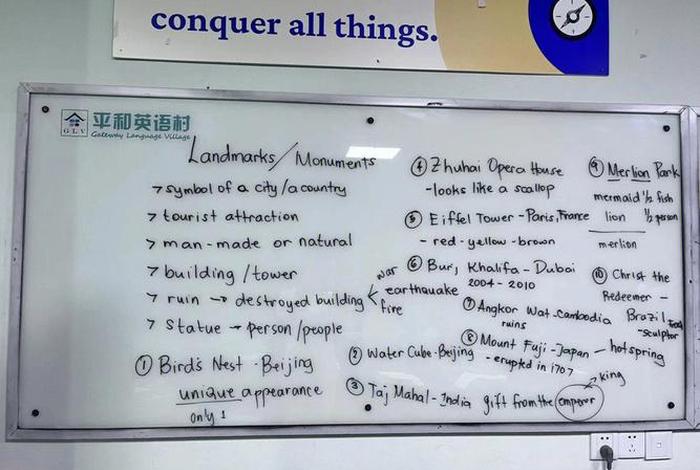 conquer all things.
平和英语村
GLV Gateway Language Village
Landmarks/Monuments
> symbol of a city/a country
> tourist attraction
> man-made or natural
> building/tower
> ruin → destroyed building < war
earthquake
fire
> statue → person/people
① Bird's Nest - Beijing
unique appearance
only 1
② Water Cube - Beijing
③ Taj Mahal - India gift from the emperor → king
④ Zhuhai Opera House
- looks like a scallop
⑤ Eiffel Tower - Paris, France
- red - yellow - brown
⑥ Burj Khalifa - Dubai
2004 - 2010
⑦ Angkor Wat - Cambodia
ruins
⑧ Mount Fuji - Japan - hot spring
- erupted in 1707
⑨ Merlion Park
mermaid 1/2 fish
lion 1/2 person
merlion
⑩ Christ the
Redeemer -
Brazil
- sculptor